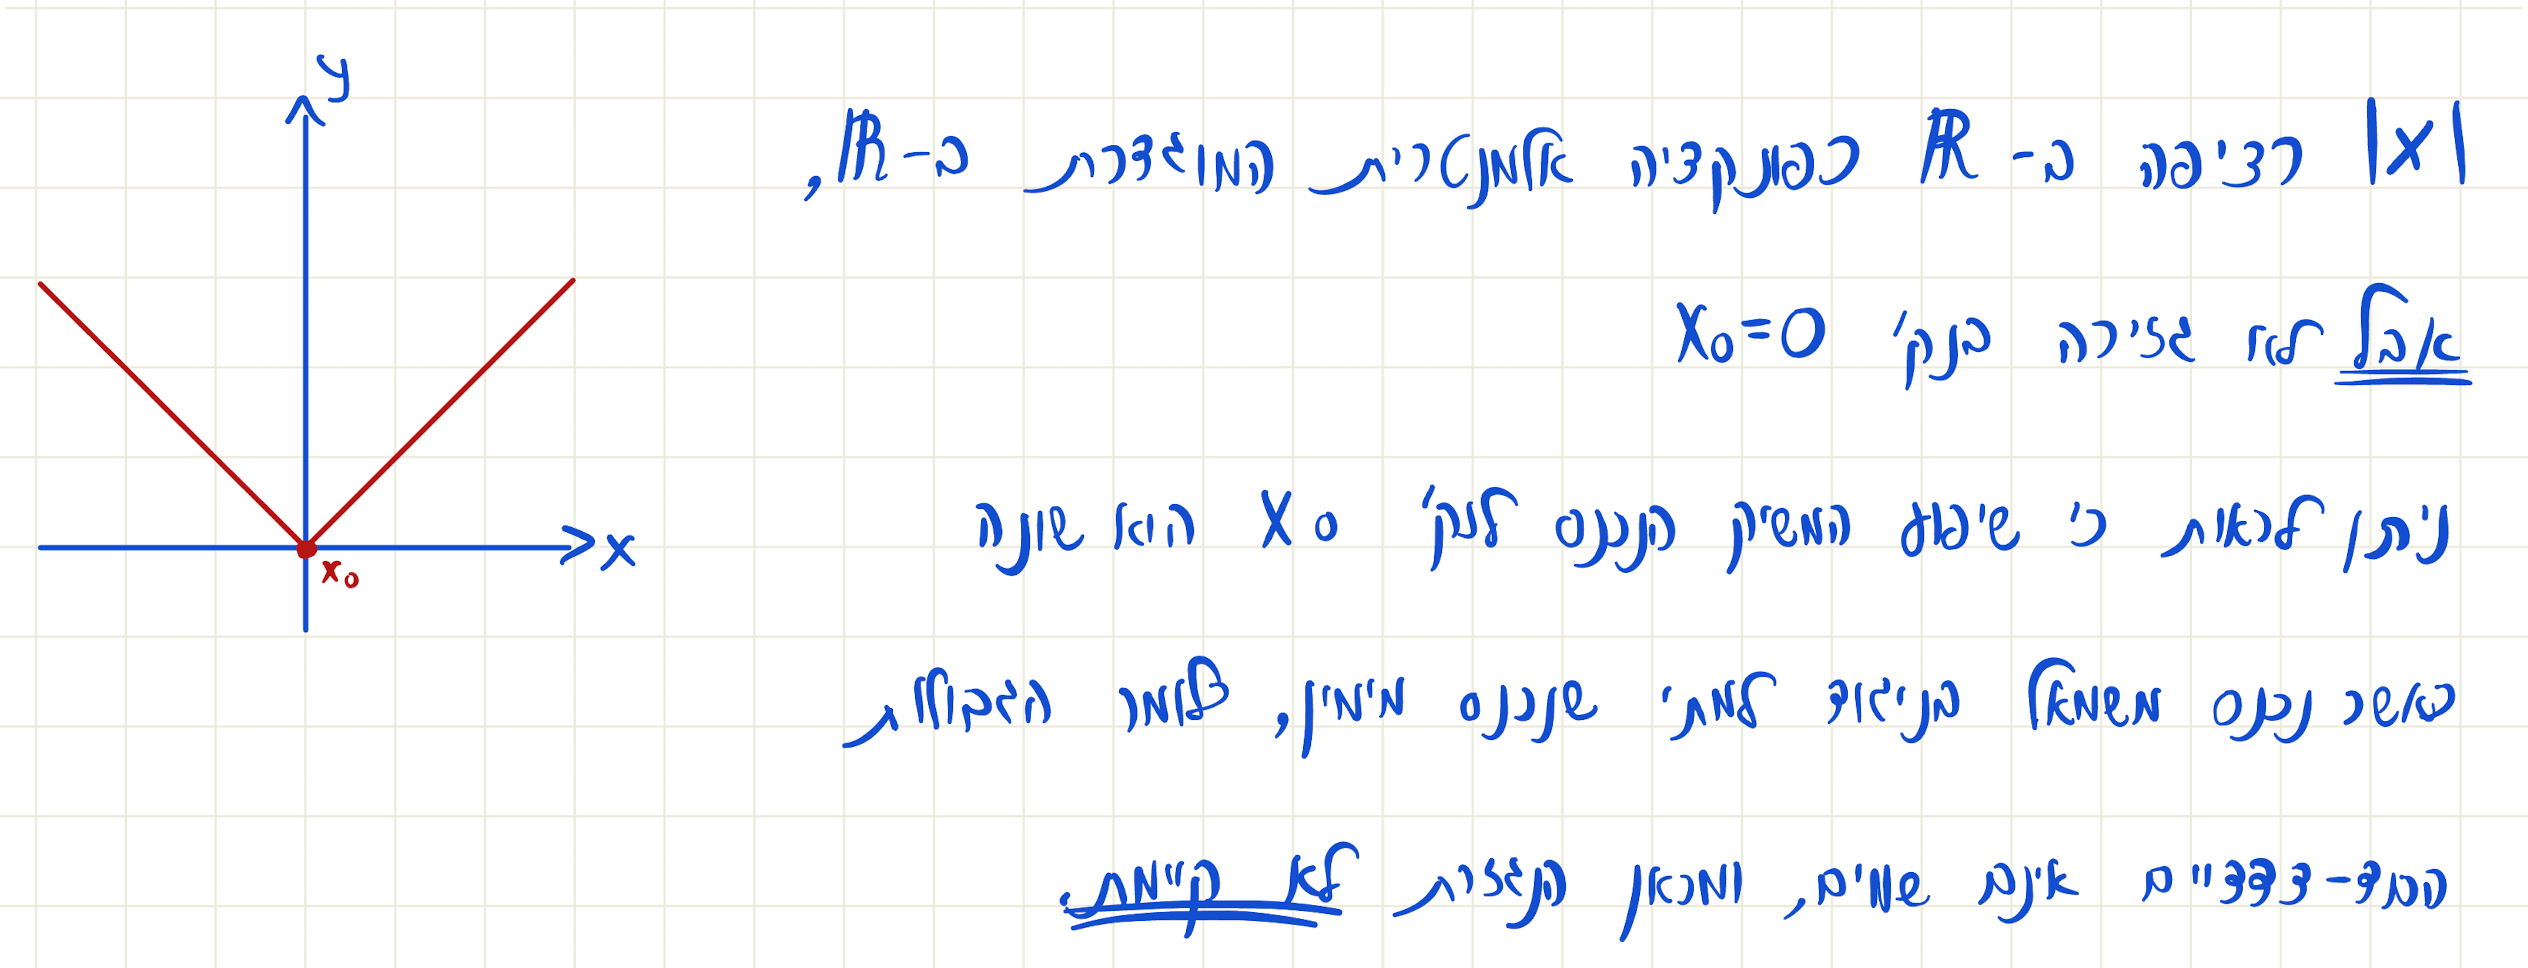 y
|x| רציפה ב-ℝ כפונקציה אלמנטרית המוגדרת ב-ℝ,
אבל לא גזירה בנק' x₀=0
ניתן לראות כי שיפוע המשיק הנכנס לנק' x₀ הוא שונה
x
x₀
כאשר נכנס משמאל בניגוד למתי שנכנס מימין, כלומר הגבולות
החד-צדדיים אינם שווים, ומכאן הנגזרת לא קיימת.